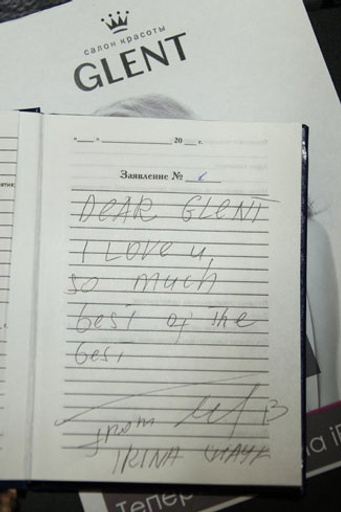 салон красоты
GLENT
"___" ___________ 20 ___ г.
Заявление № ______
DEAR GLENT
I LOVE U,
SO much
best of the
best
from
IRINA
Тепер